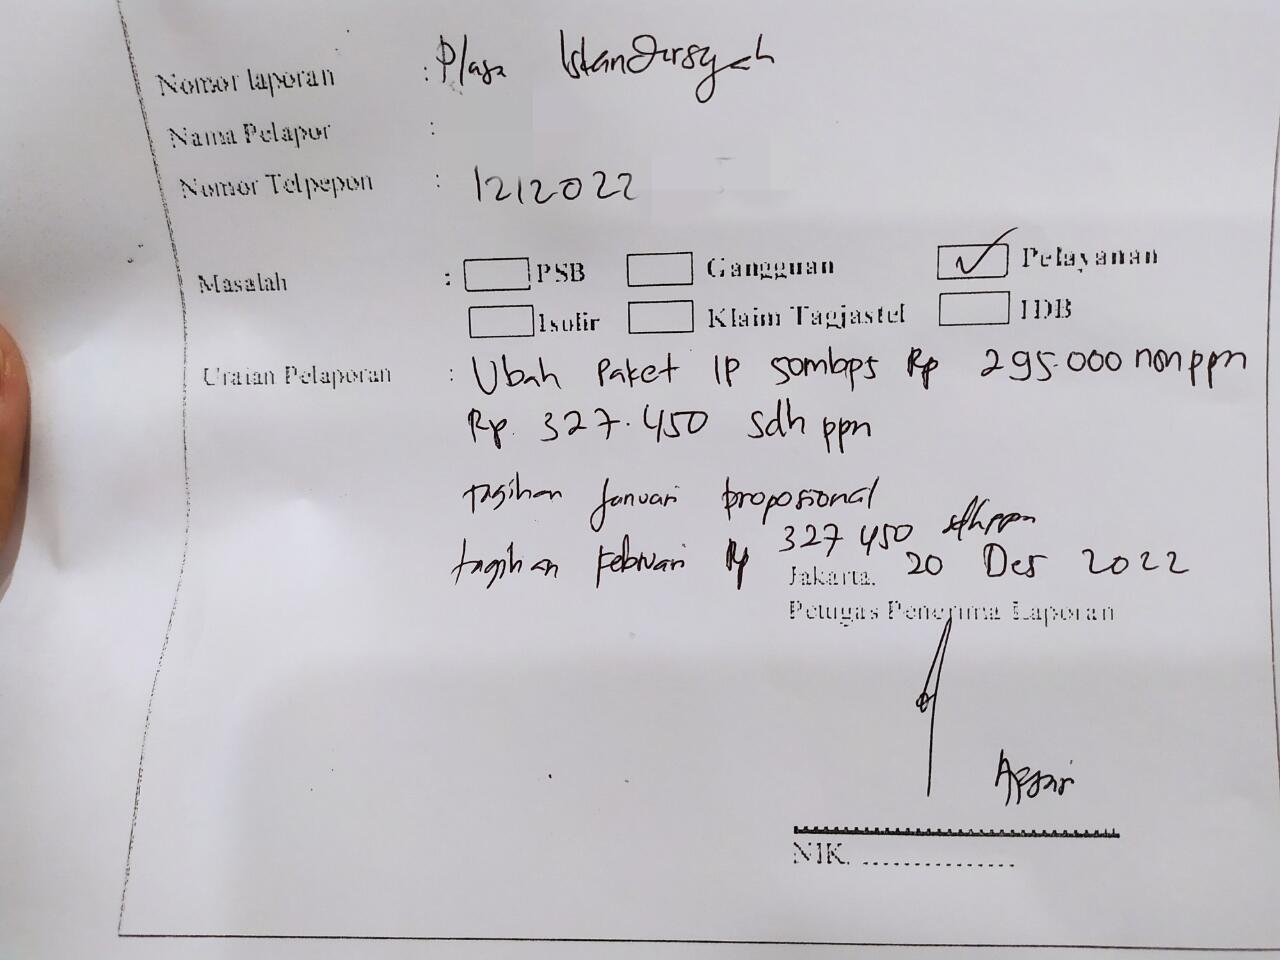 Nomor laporan : Plasa Iskandarsyah
Nama Pelapor :
Nomor Telpepon : 1212022
Masalah : PSB Gangguan ✓ Pelayanan
Isolir Klaim Tagjastel IDB
Uraian Pelaporan : Ubah Paket IP 50mbps Rp 295.000 non ppn
Rp. 327.450 sdh ppn
tagihan Januari proposional
tagihan Februari Rp 327 450 sdh ppn
Jakarta, 20 Des 2022
Petugas Penerima Laporan
Apsari
NIK. ................